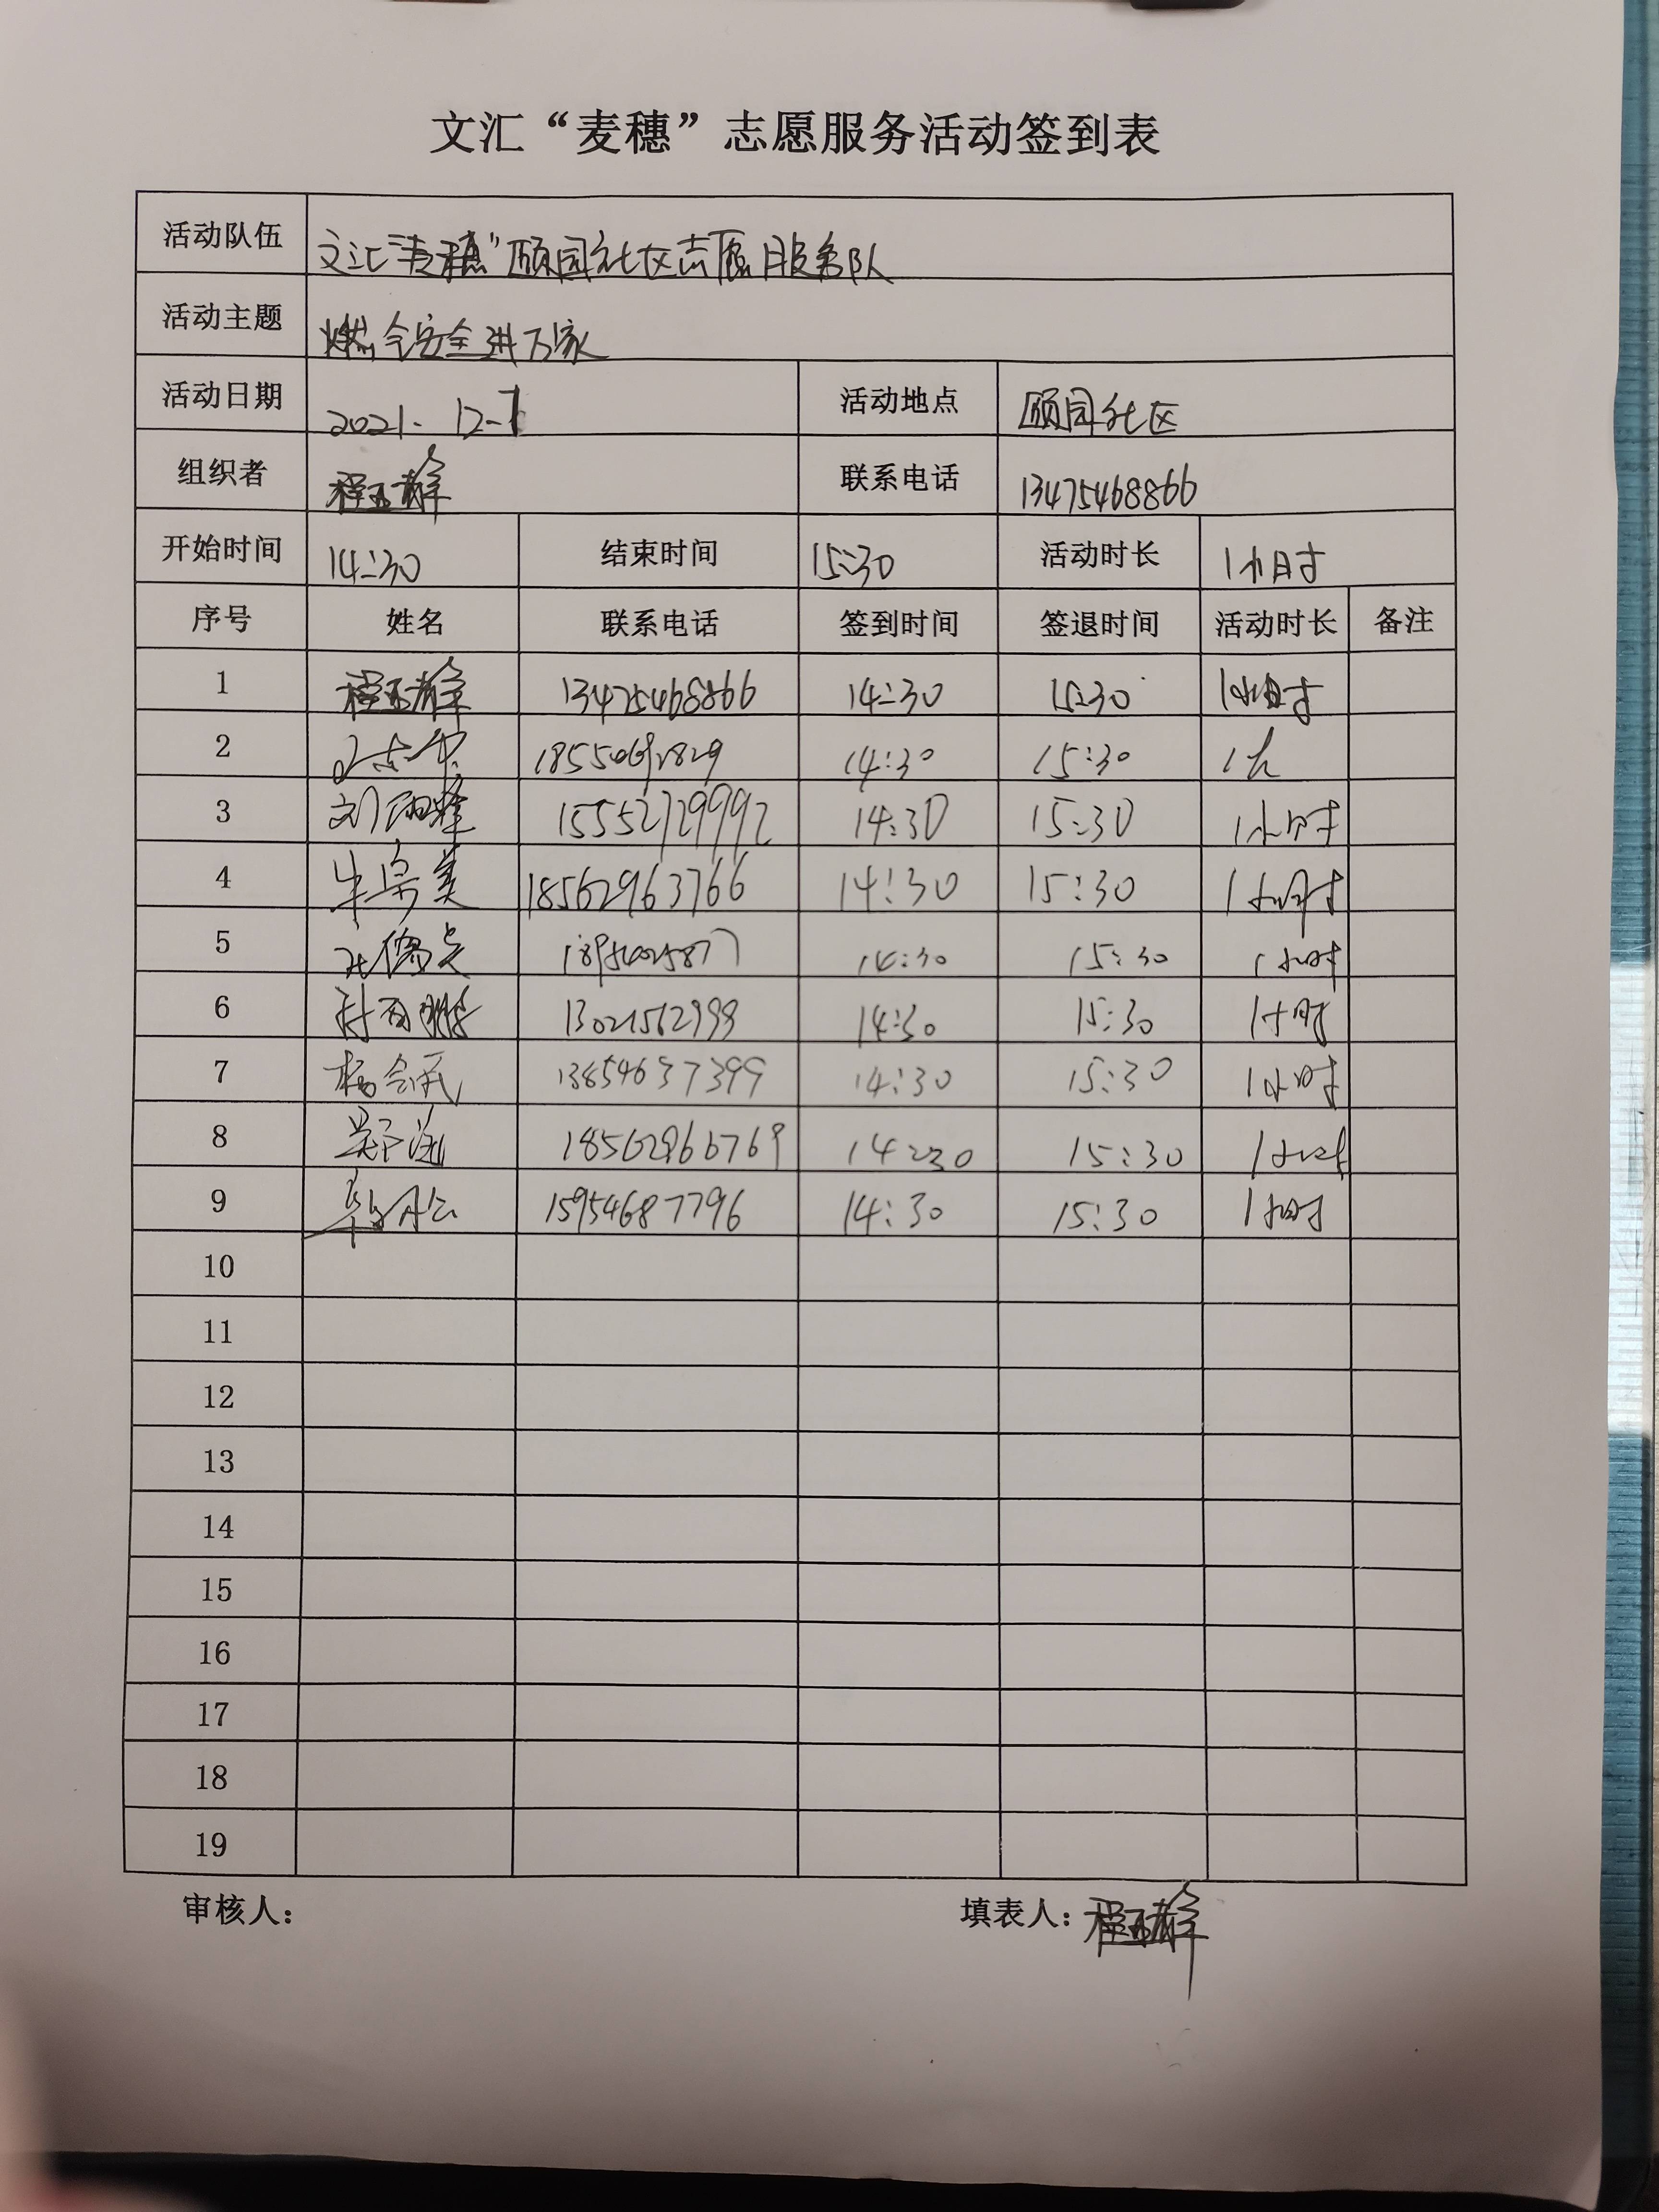 文汇“麦穗”志愿服务活动签到表
活动队伍 文汇“麦穗”颐园社区志愿服务队
活动主题 燃气安全进万家
活动日期 2021. 12-7 活动地点 颐园社区
组织者 联系电话 13475468866
开始时间 14:30 结束时间 15:30 活动时长 1小时
序号 姓名 联系电话 签到时间 签退时间 活动时长 备注
1 13475468866 14:30 15:30 1小时
2 14:30 15:30 1h
3 15552729992 14:30 15:30 1小时
4 18562963766 14:30 15:30 1小时
5 14:30 15:30 1小时
6 13021562999 14:30 15:30 1小时
7 13854637399 14:30 15:30 1小时
8 18562966769 14:30 15:30 1小时
9 15954687796 14:30 15:30 1小时
10
11
12
13
14
15
16
17
18
19
审核人： 填表人：